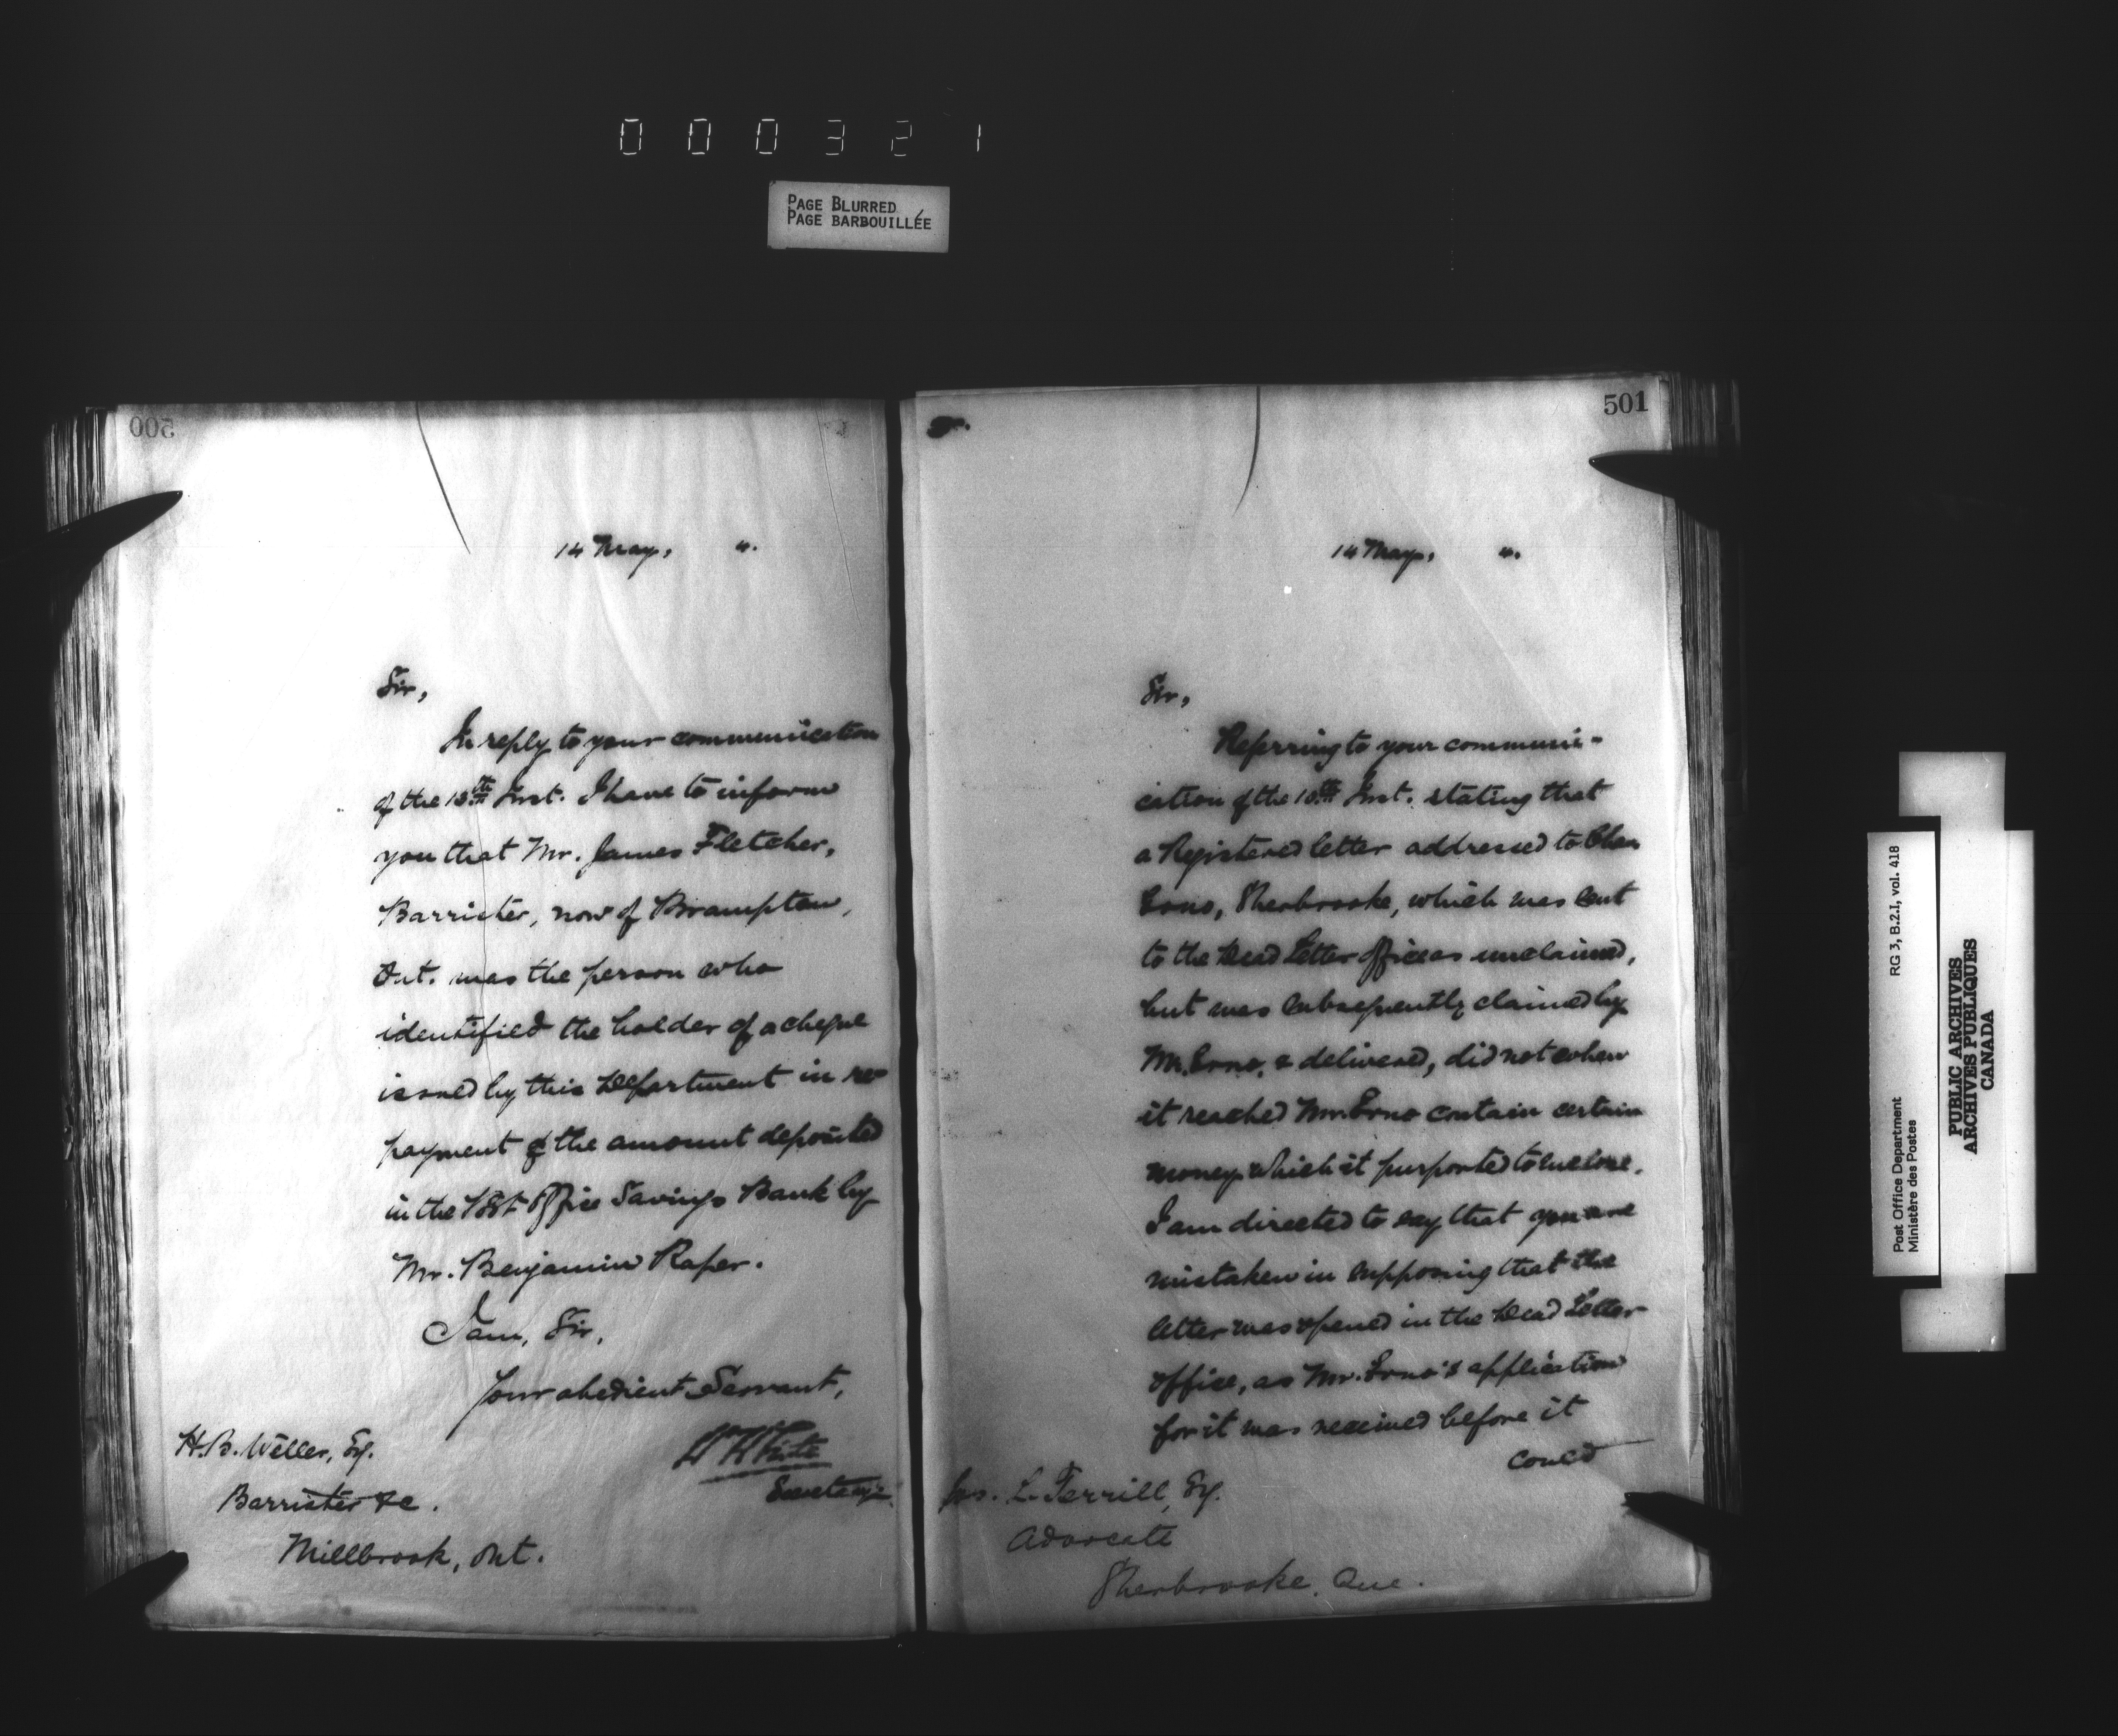 000321
PAGE BLURRED
PAGE BARBOUILLÉE
500
14 May, ".
Sir,
In reply to your communication
of the 13th Inst. I have to inform
you that Mr. James Fletcher,
Barrister, now of Brampton,
Ont. was the person who
identified the holder of a cheque
issued by this Department in re-
payment of the amount deposited
in the Post Office Savings Bank by
Mr. Benjamin Raper.
I am, Sir,
Your obedient Servant,
Wm White
Secretary.
H.B. Weller, Esq.
Barrister &c.
Millbrook, Ont.
501
14 May, ".
Sir,
Referring to your communi-
cation of the 10th Inst. stating that
a Registered letter addressed to Chas
Sherbrooke, which was sent
to the Dead Letter Office as unclaimed,
but was subsequently claimed by
Mr. & delivered, did not when
it reached Mr. contain certain
money which it purported to enclose.
I am directed to say that you are
mistaken in supposing that the
letter was opened in the Dead Letter
Office, as Mr. application
for it was received before it
could
Jos. L. Terrill, Esq.
Advocate
Sherbrooke, Que.
Post Office Department RG 3, B.2.I, vol. 418
Ministère des Postes
PUBLIC ARCHIVES
ARCHIVES PUBLIQUES
CANADA